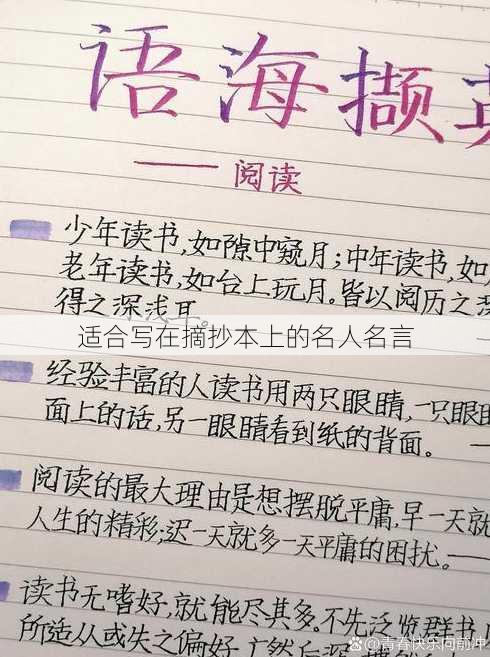 语海撷英
—— 阅读
少年读书,如隙中窥月;中年读书,如
老年读书,如台上玩月。皆以阅历之深
得之深浅耳。
适合写在摘抄本上的名人名言
经验丰富的人读书用两只眼睛,一只眼睛
面上的话,另一眼睛看到纸的背面。 —
阅读的最大理由是想摆脱平庸,早一天就
人生的精彩;迟一天就多一天平庸的困扰。—
读书无嗜好,就能尽其多。不先泛览群书
所适从或失之偏好,广然后深
@青春快乐向前冲